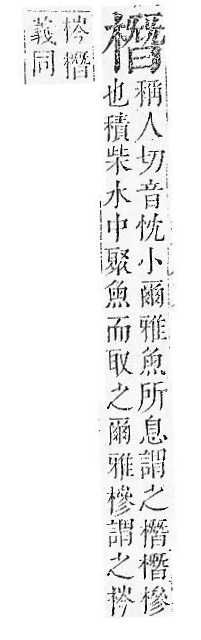 橬
稱人切音忱小爾雅魚所息謂之橬橬槮
也積柴水中聚魚而取之爾雅槮謂之梣
梣橬
義同